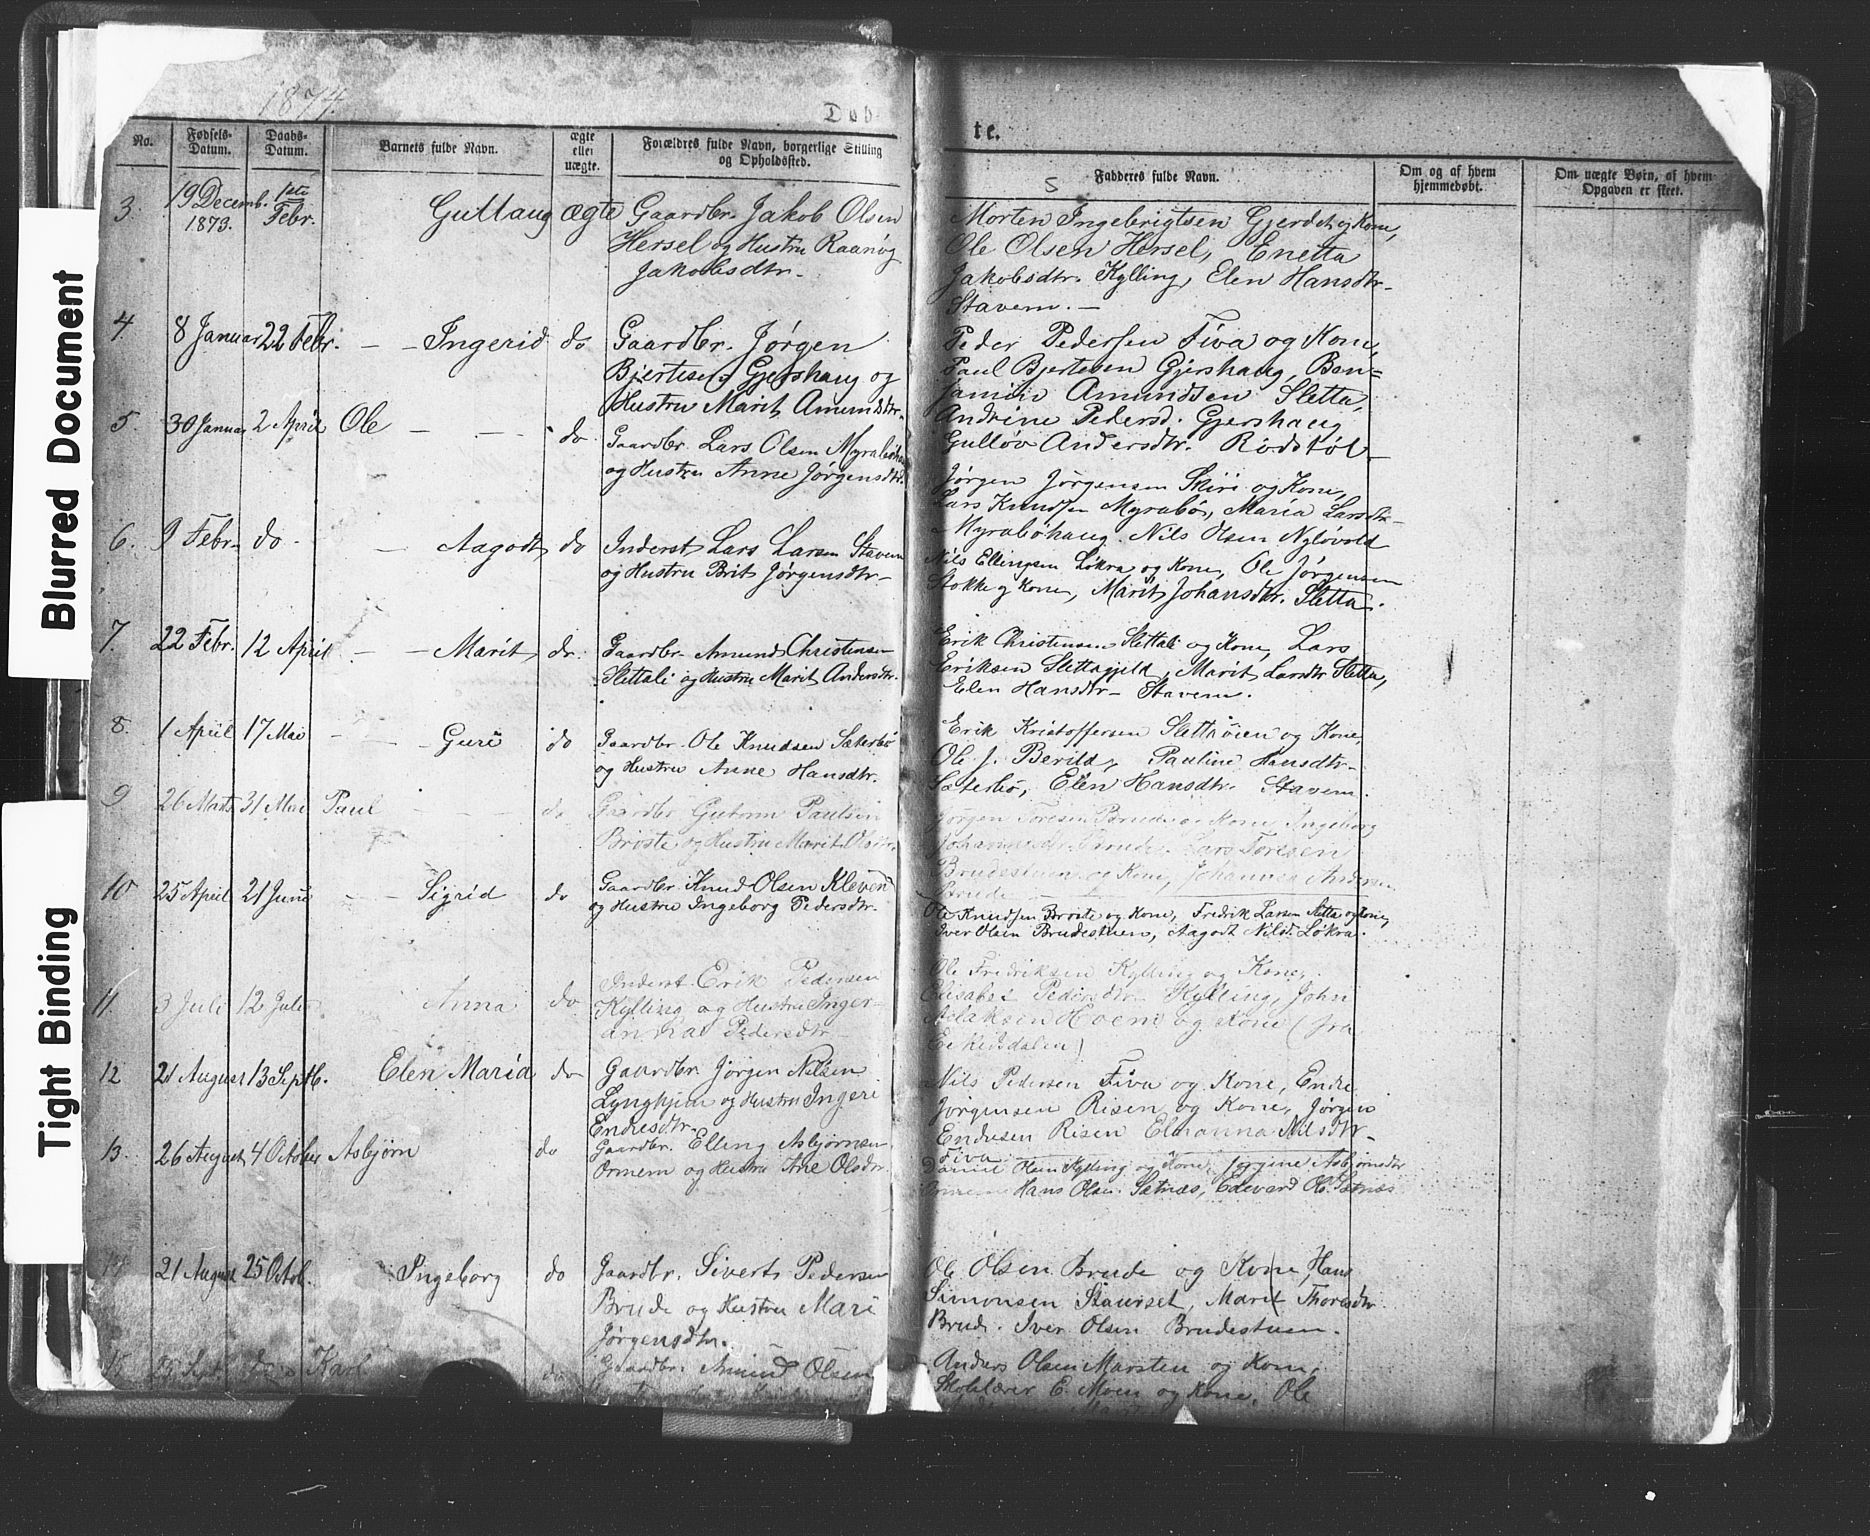 1874.
Døb
No.
Fødsels-
Datum.
Daabs-
Datum.
Barnets fulde Navn.
ægte
eller
uægte.
Forældres fulde Navn, borgerlige Stilling
og Opholdssted.
3.
19 Decemb.
1873.
1ste
Febr.
Gullaug
ægte
Gaardbr. Jakob Olsen
Hersel og Hustru Raanøg
Jakobsdtr.
4
8 Januar
22 Febr.
Ingerid
do
Gaardbr. Jørgen
Bjertesen Gjershaug og
Hustru Marit Amundsdtr.
5.
30 Januar
2 April
Ole
do.
Gaardbr. Lars Olsen
og Hustru Anne Jørgensdtr.
6.
9 Febr.
do
Aagodt
do
Inderst Lars Larsen Stavem
og Hustru Brit Jørgensdtr
7.
22 Febr.
12 April
Marit
do.
Gaardbr. Amund Christensen
Slettali og Hustru Marit Andersdtr.
8.
1 April
17 Mai
Guri
do
Gaardbr. Ole Knudsen Sæterbø
og Hustru Anne Hansdtr.
9
26 Marts
31 Mai
Paul
do
Gaardbr Guttorm Paulsen
Brøste og Hustru Marit Olsdtr.
10
25 April
21 Juni
Sigrid
do
Gaardbr. Knud Olsen Kleven
og Hustru Ingeborg Pedersdtr.
11.
3 Juli
12 Juli
Anna
do
Inderst Erik Pedersen
Kylling og Hustru
Pedersdtr
12
21 August
13 Septb.
Elen Maria
do
Gaardbr. Jørgen Nilsen
Lynghjem og Hustru Ingeri
Endresdtr.
13.
26 August
4 October
Asbjørn
do
Gaardbr. Elling Asbjørnsen
Ormem og Hustru Ane Olsdtr.
14
21 August
25 Octob.
Ingeborg
do
Gaardbr. Sivert Pedersen
Brude og Hustru Mari
Jørgensdtr.
15
25 Sept.
do
Karl
do
Gaardbr. Amund Olsen
te.
5
Fadderes fulde Navn.
Om og af hvem
hjemmedøbt.
Om uægte Børn, af hvem
Opgaven er skeet.
Morten Ingebrigtsen Gjerdet og Kone,
Ole Olsen Hersel, Enetta
Jakobsdtr. Kylling, Elen Hansdtr
Stavem.
Peder Pedersen Fiva og Kone,
Paul Bjertesen Gjershaug, Ben=
jamin Amundsen Sletta,
Andrine Pedersd. Gjershaug
Gulløv Andersdtr. Rødstøl
Jørgen Jørgensen Skiri og Kone,
Lars Knudsen Myrabø, Maria Larsdtr
Myrabøhaug. Nils Olsen
Nils Ellingsen Løkra og Kone, Ole Jørgensen
Stokke og Kone, Marit Johansdtr. Sletta.
Erik Christensen Slettali og Kone, Lars
Eriksen Slettagjeld, Marit Larsdtr Sletta,
Elen Hansdtr Stavem.
Erik Kristoffersen Slettaøien og Kone,
Ole J. Berild, Pauline Hansdtr
Sæterbø, Elen Hansdtr. Stavem.
Jørgen Toresen Brude og Kone, Ingeborg
Brude, Lars Toresen
Brudestuen og Kone, Johannes Andersen
Brude
Ole Knudsen Brøste og Kone, Fredrik Larsen Sletta og Kone,
Iver Olsen Brudestuen, Aagodt Nilsd. Løkra.
Ole Fredriksen Kylling og Kone,
Elisabet Pedersdtr Kylling, John
Aslaksen Hoem og Kone (fra
Eikisdalen)
Nils Pedersen Fiva og Kone, Endre
Jørgensen Risen og Kone, Jørgen
Endresen Risen Elmanna Nilsdtr
Fiva
Kylling og Kone, Jørgine Asbjørnsdtr
Hans Olsen Sætnæs, Edevard Ols. Sætnæs
Ole Olsen Brude og Kone, Hans
Simonsen Staurset, Marit Thoresdtr.
Brude. Iver Olsen Brudestuen.
Anders Olsen Marsten og Kone,
Skolelærer E. Moen og Kone, Ole
Blurred Document
Tight Binding